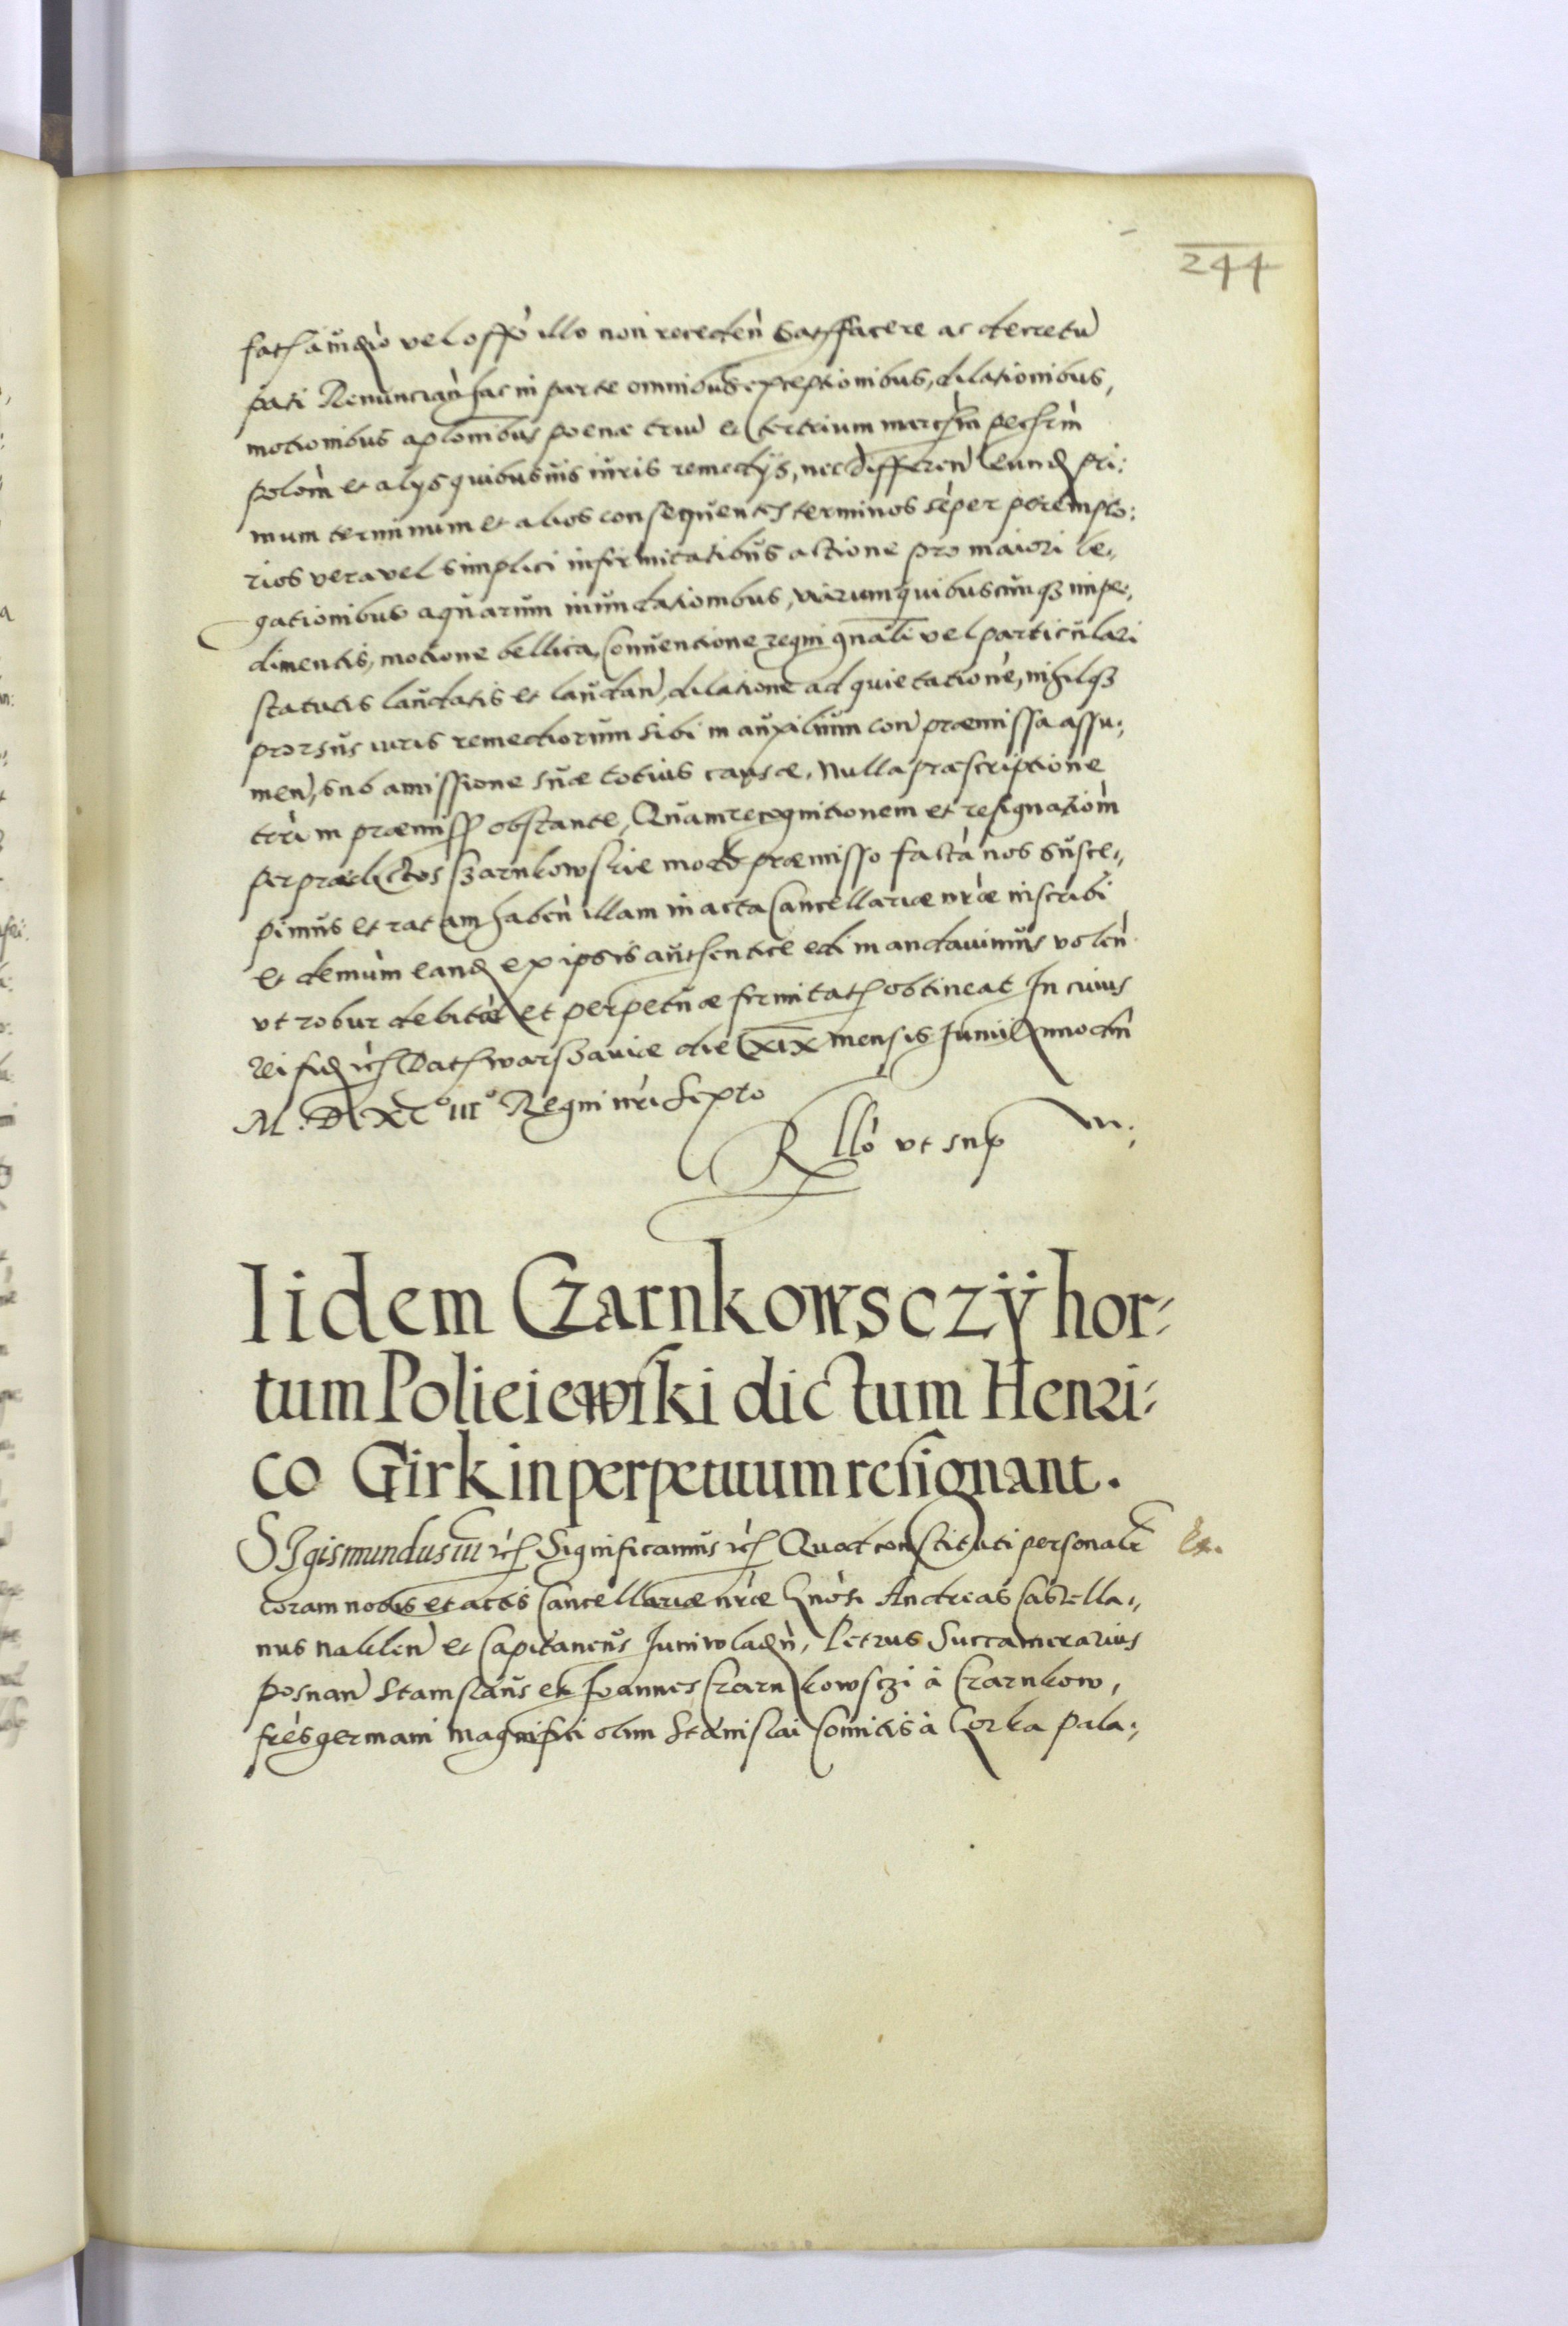 244
vel offo illo non receden̄ satisfacere ac decretū
pati Renuncian̄ hac in parte omnibus exceptionibus, dilationibus,
motionibus poenæ triū et
et alÿs quibusuis iuris remedÿs, nec differen̄ pri:
mum terminum et alios consequentes terminos sēper perempto:
rios vera vel simplici infirmitatibus actione pro maiori le,,
gationibus aquarum inundationibus, viarum quibuscunq3 impe,,
dimentis, motione bellica, Conuentione regni gnāli vel particulari
statutis laudatis et laudan̄, dilatione ad quietationē, nihilq3
prorsus iuris remediorum sibi in auxilium con̄ præmissa assu:
men̄, sub amissione suæ totius causæ. Nulla præscriptione
terrī in præmiss obstante, Quam recognitionem et resignatiom̄
per prædictos Czarnkowskie modo præmisso factā nos susce,,
pimus et ratam haben̄ illam in acta Cancellariæ nr̄æ inscribi
et demum eand ex ipsis authentice edi mandauimus volen̄
vt robur debitæ et perpetuæ firmitat obtineat In cuius
rei fid rc Dat warszauiæ die XIX mensis Iunii Anno dnī
M. D. XC° III° Regni nr̄i Sexto
Rllō vt sup m:
Iidem Czarnkowsczÿ hor=
tum Policiewski dictum Henri=
co Girk in perpetuum resignant.
SIgismundus III rc Significamus rc Quod constituti personalr Ex.
coram nobis et actis Cancellariæ nr̄æ Gnōsi Andreas Castella,,
nus naklen̄ et Capitaneus Juniwladn̄, Petrus Succamerarius
posnan̄ Stanislaus et Ioannes Czarnkowsczi à Czarnkow,
frēs germani magnifici olim Stanislai Comitis à Gorka pala: